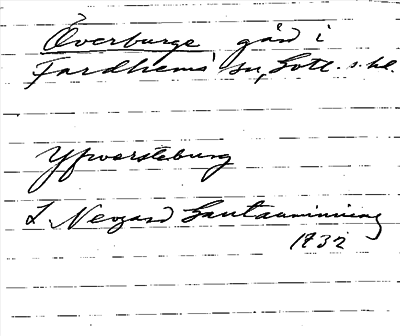 Överburge gård i
Fardhems sn, Gotl. s. hd.
Yfwersteburg
L Neogard Gautauminning
1732